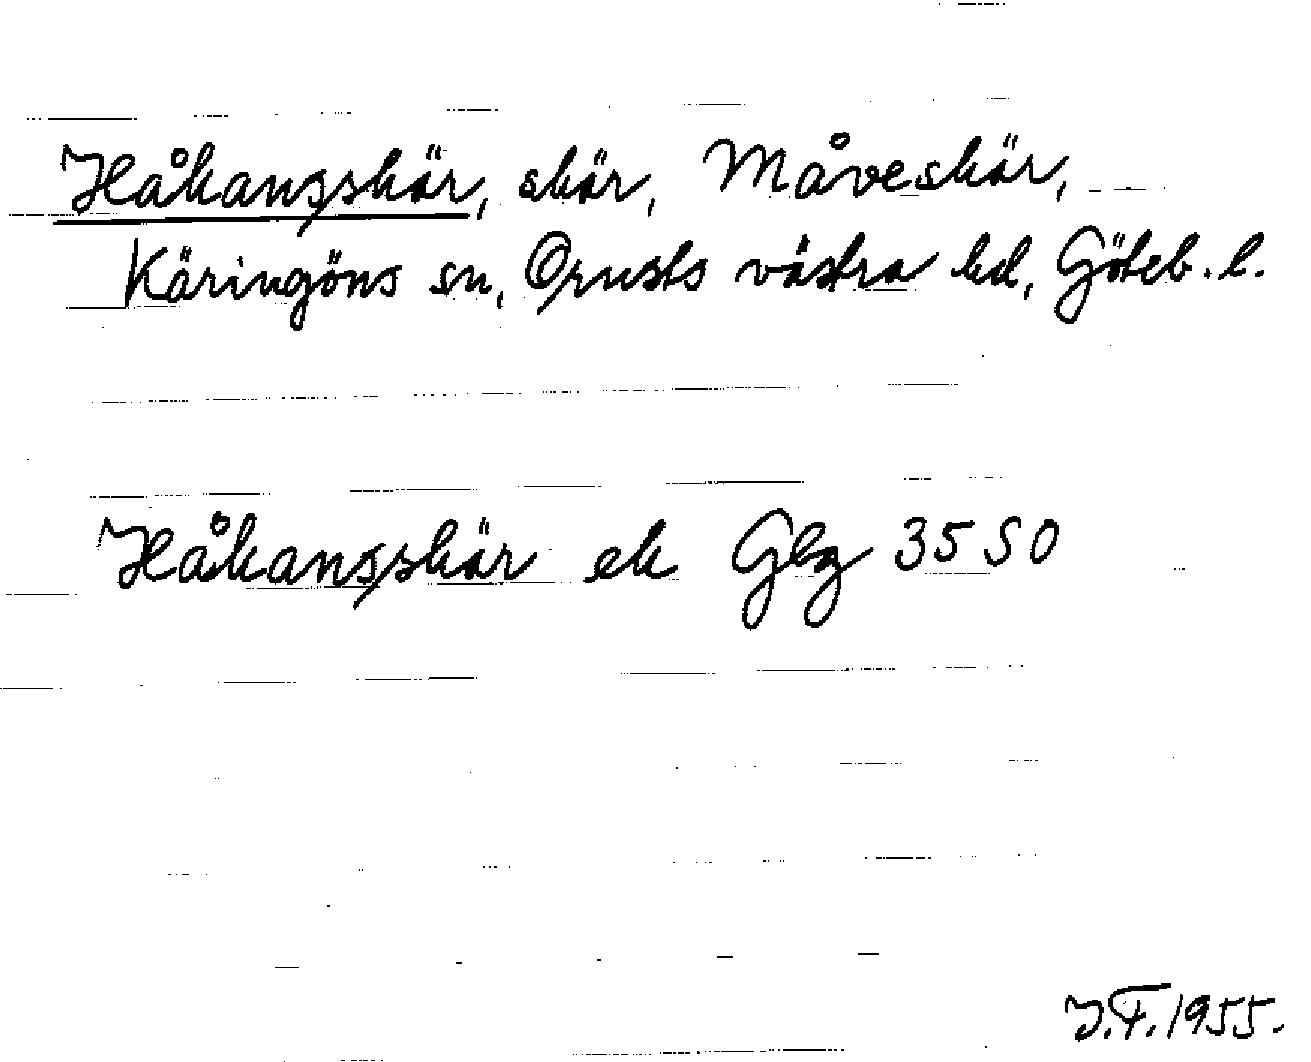 Håkansskär, skär, Måveskär,
Käringöns sn, Orusts västra hd, Göteb. l.
Håkansskär ek Gbg 35 SO
J.F. 1955.